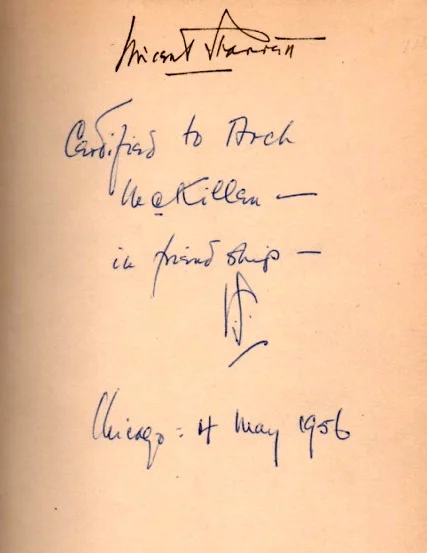 Vincent Starrett
Certified to Arch
McKillen —
in friendship —
Chicago : 4 May 1956